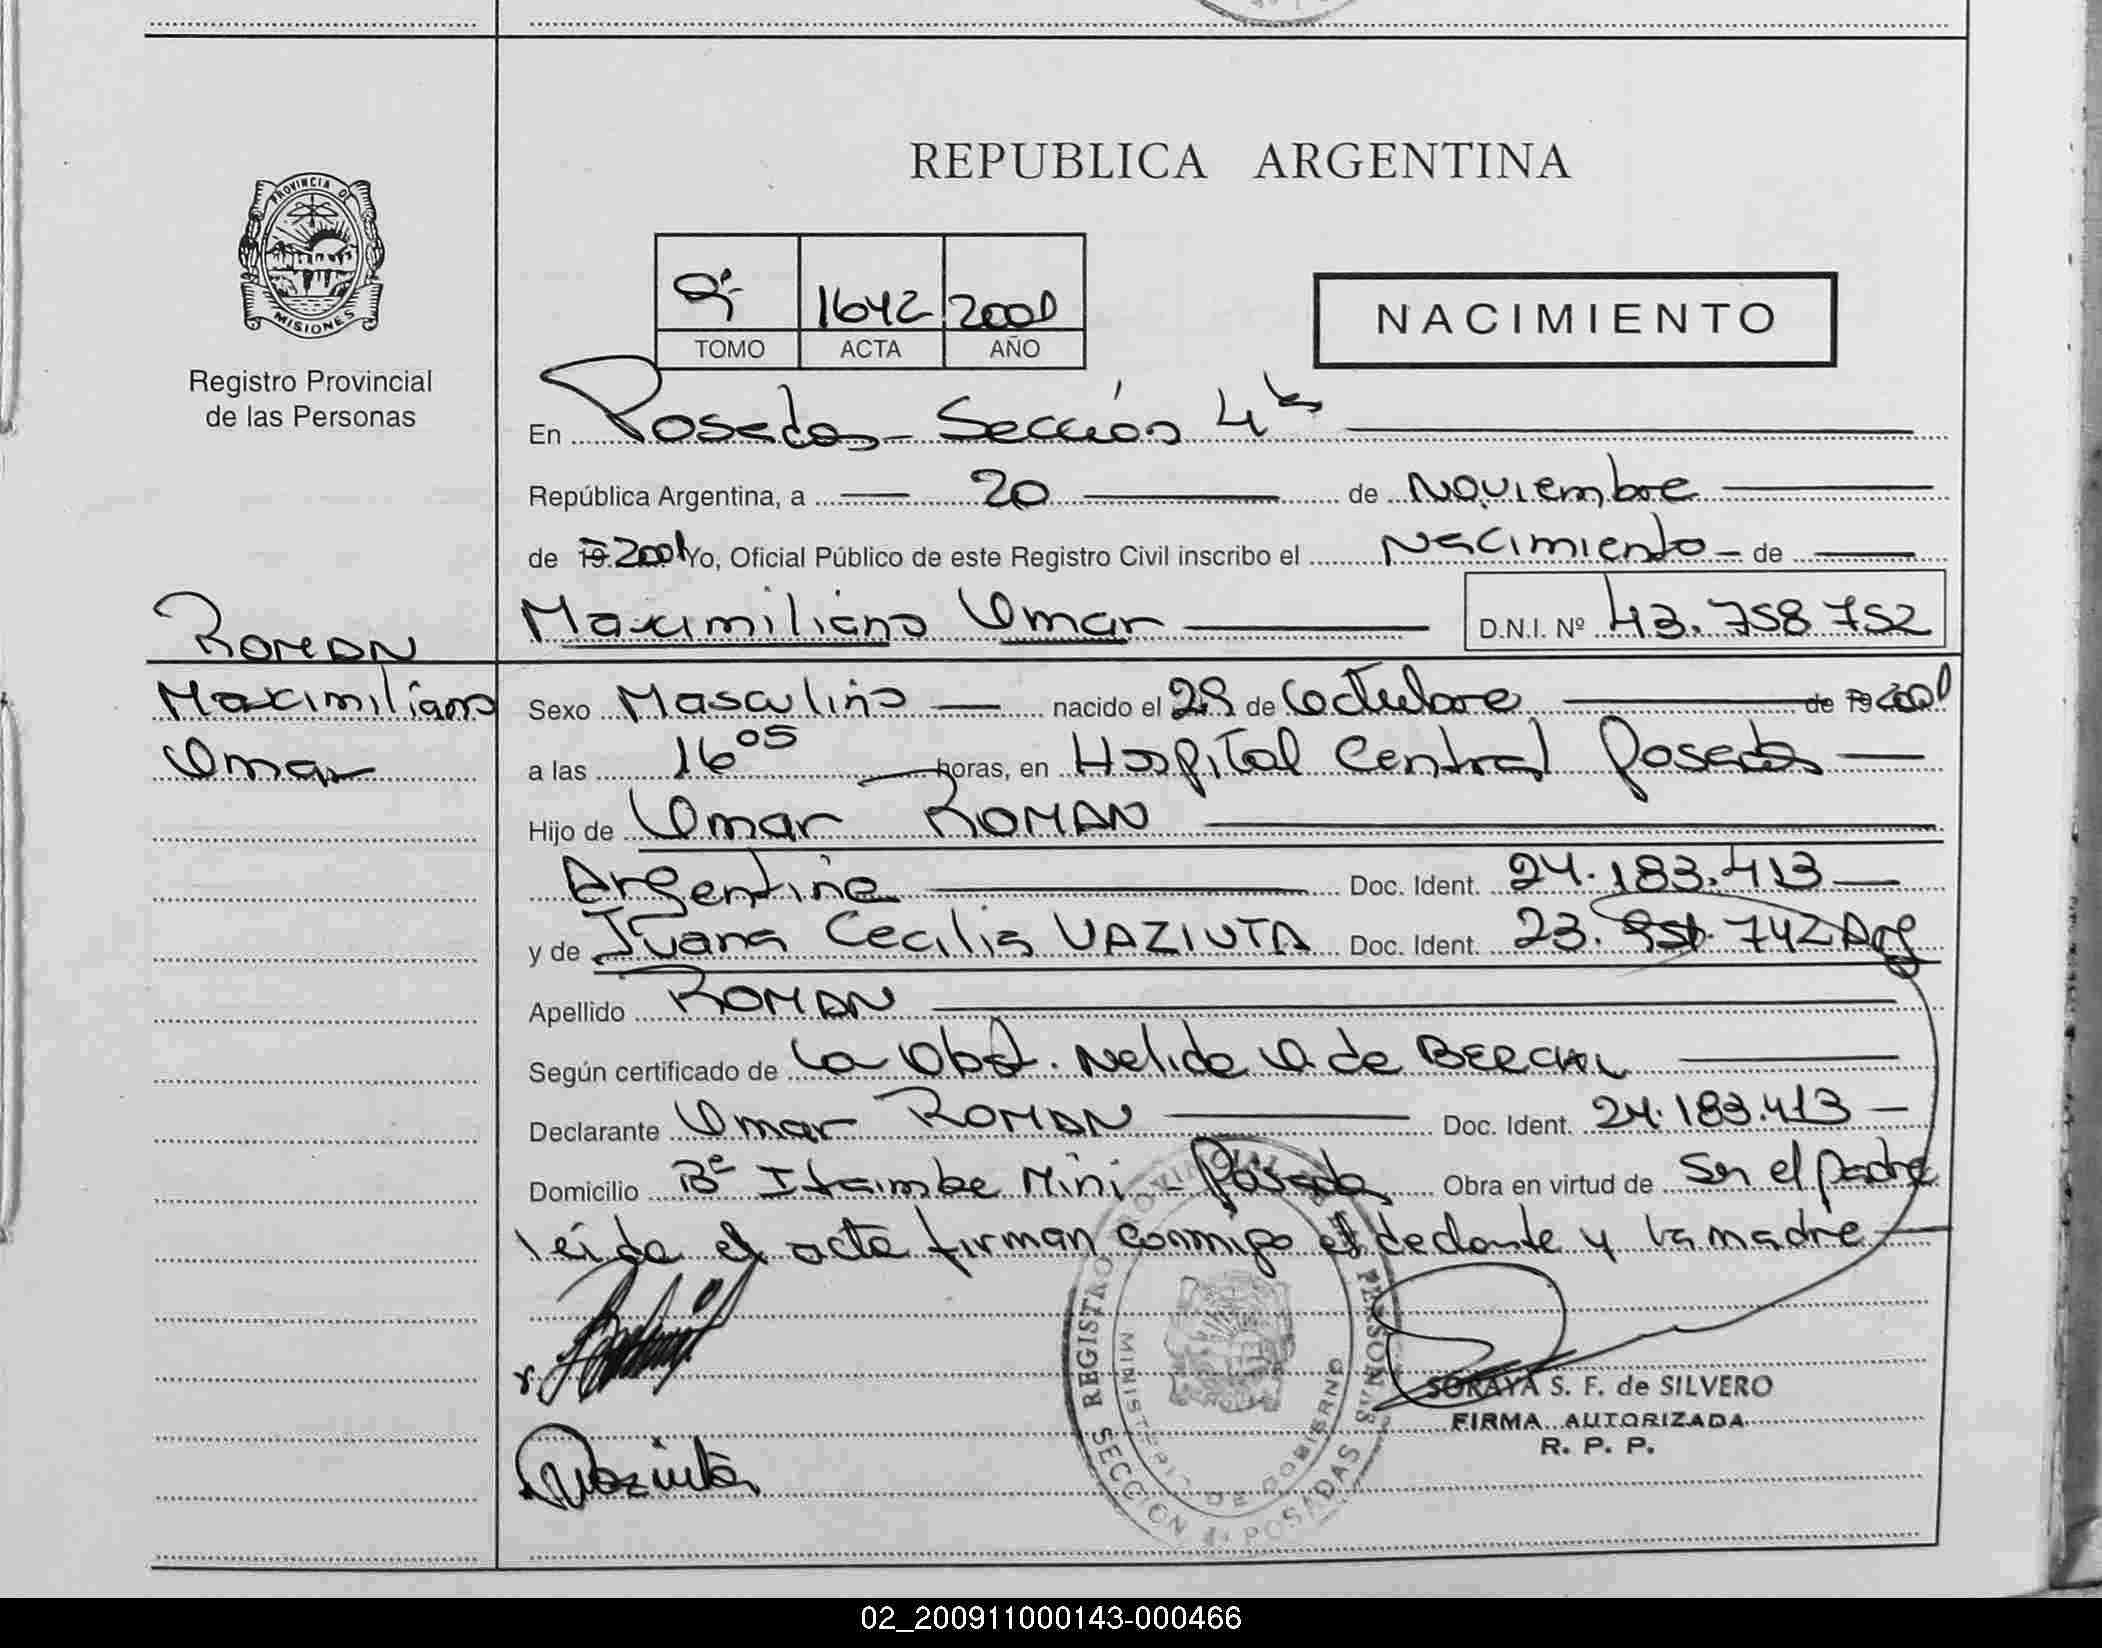 REPUBLICA ARGENTINA
PROVINCIA DE
MISIONES
Registro Provincial
de las Personas
1642 2001
TOMO ACTA AÑO
NACIMIENTO
En Posadas - Sección 4ta
República Argentina, a 20 de Noviembre
de 19 2001 Yo, Oficial Público de este Registro Civil inscribo el Nacimiento de
Maximiliano Omar D.N.I. Nº 43.758.752
ROMAN
Maximiliano
Omar
Sexo Masculino nacido el de Octubre de 19 2001
a las 16 05 horas, en Hospital Central Posadas
Hijo de Omar ROMAN
Argentina Doc. Ident. 24.183.413
y de Juana Cecilia VAZIUTA Doc. Ident. 23. 742 Arg
Apellido ROMAN
Según certificado de La Obst. Nelida O. de
Declarante Omar ROMAN Doc. Ident. 24.183.413
Domicilio Bº Itaimbe Mini - Posadas Obra en virtud de Ser el padre
Leida el acta firman conmigo el declante y la madre
SORAYA S. F. de SILVERO
FIRMA AUTORIZADA
R. P. P.
REGISTRO PROVINCIAL DE LAS PERSONAS
MINISTERIO DE GOBIERNO
SECCION 4a POSADAS
02_200911000143-000466